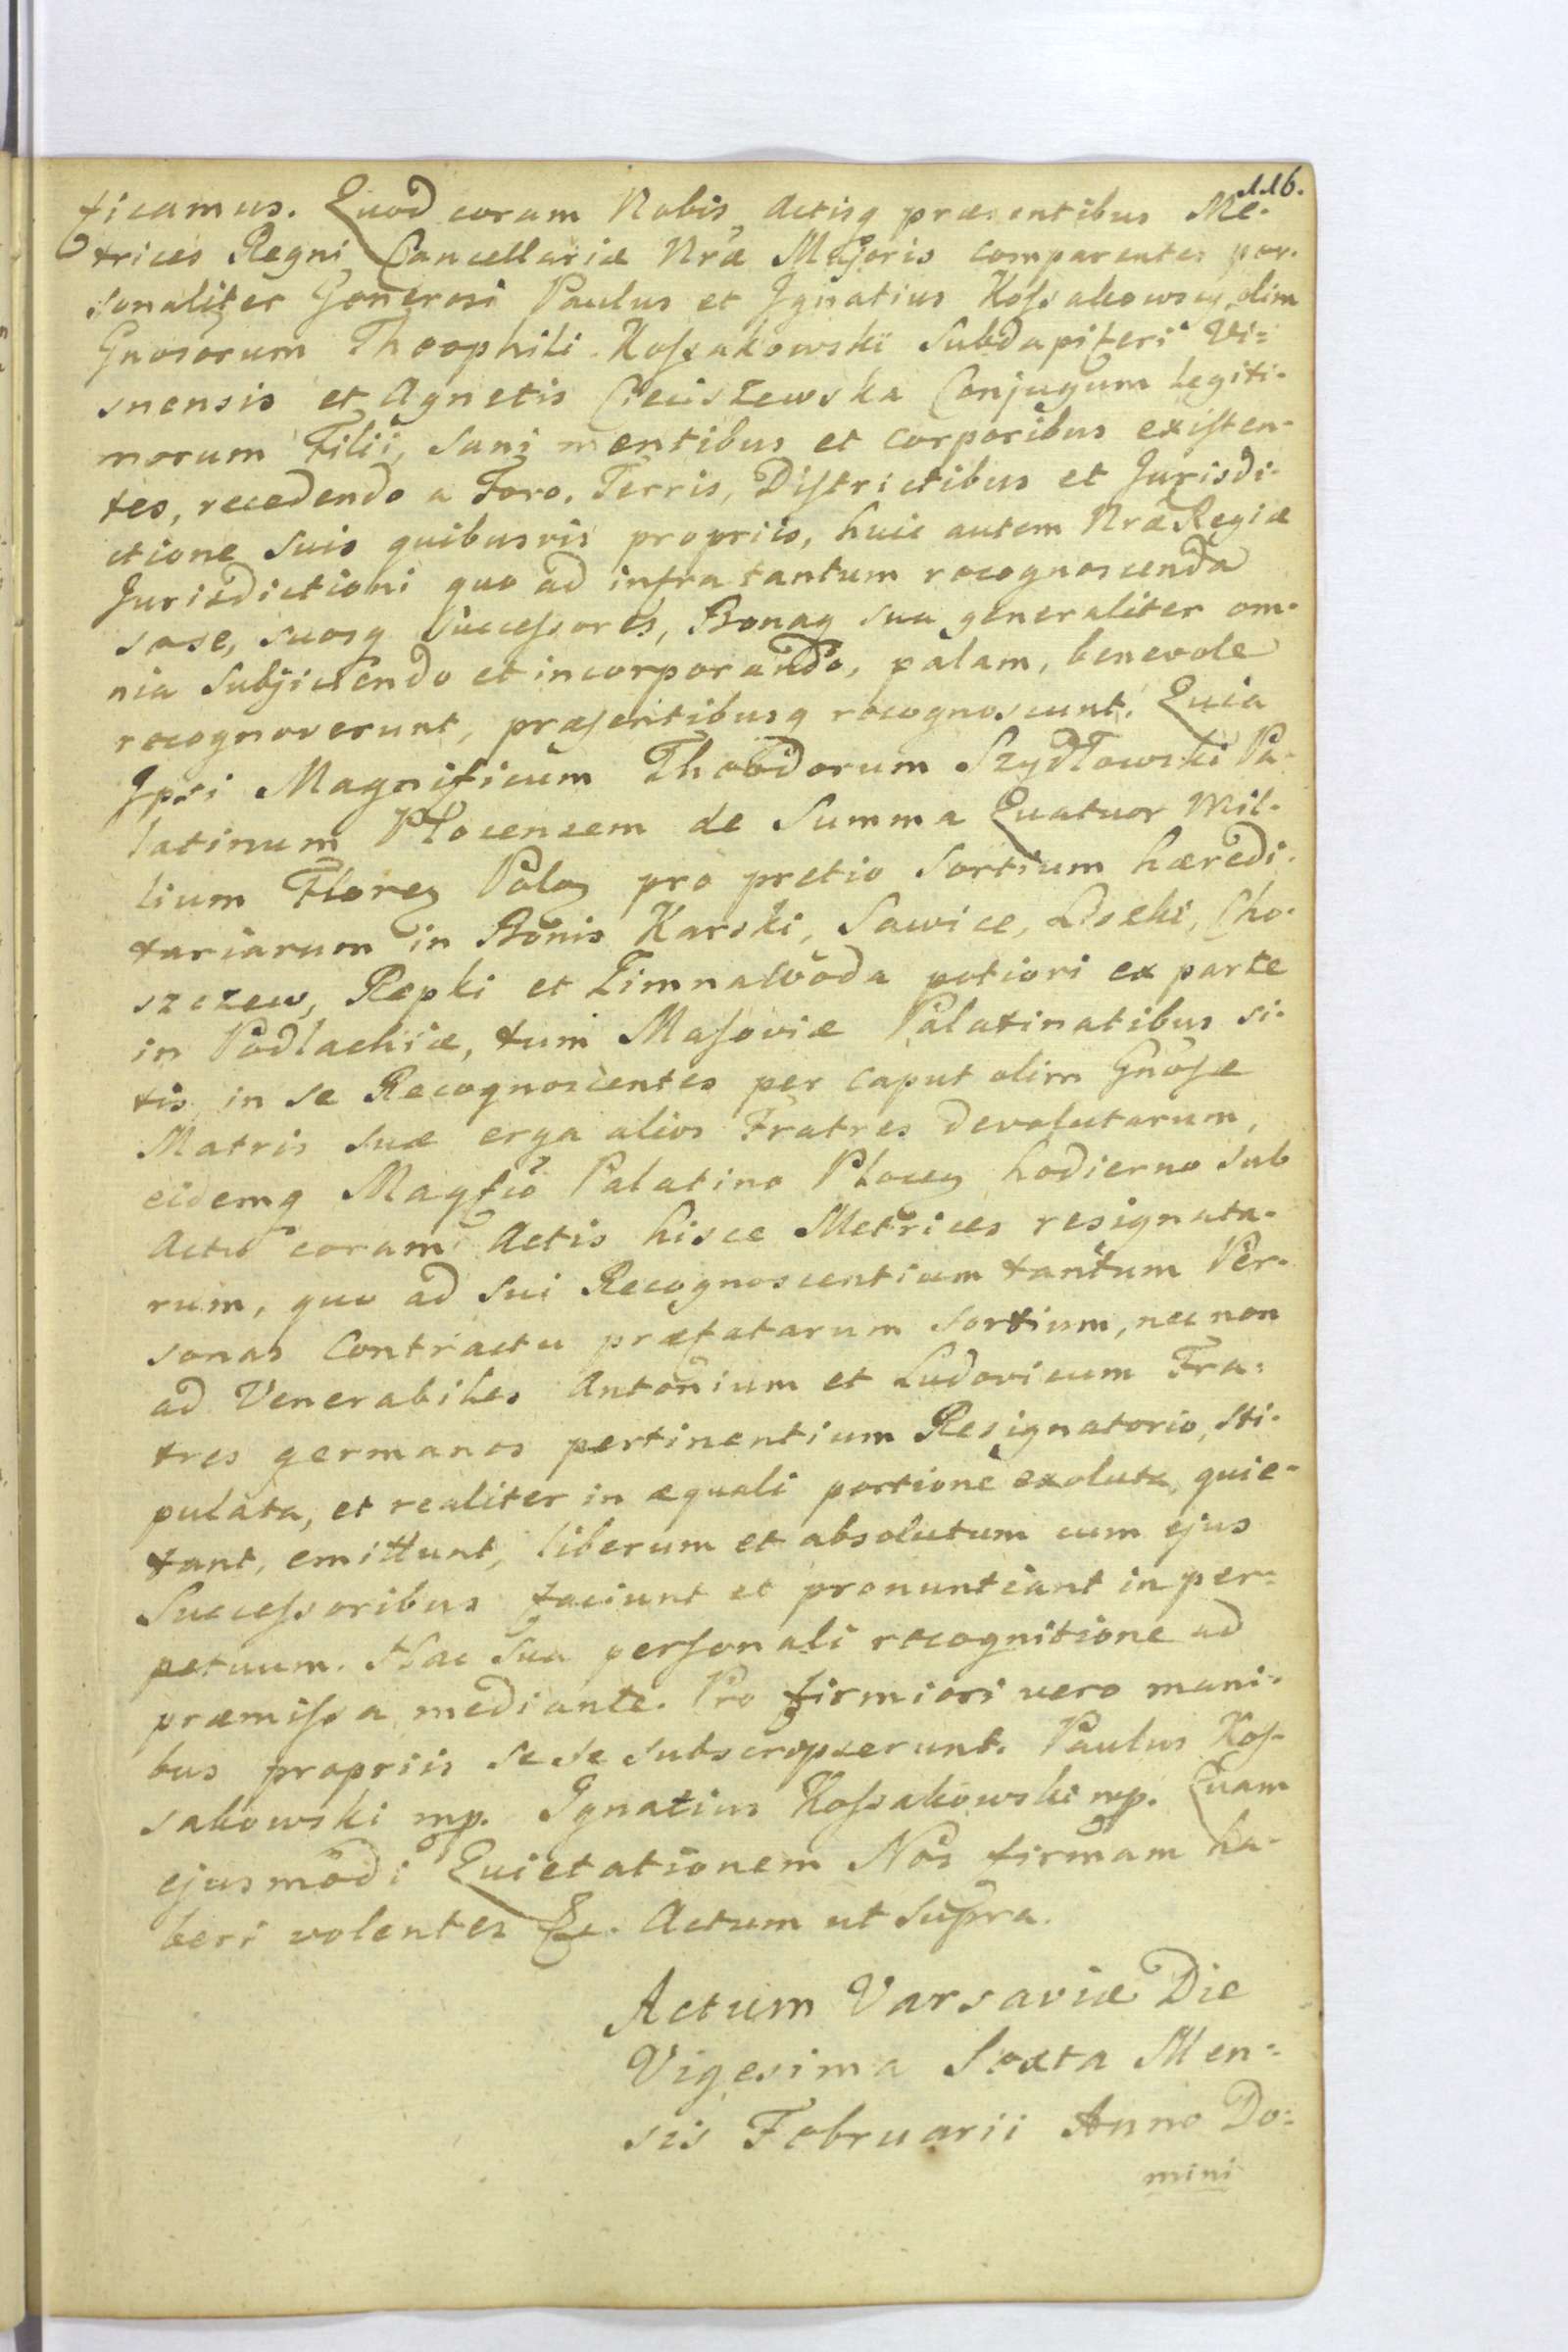 116.
ficamus. Quod coram Nobis, Actisq praesentibus Me-
trices Regni Cancellariæ Nræ Majoris comparentes per-
sonaliter Generosi Paulus et Ignatius Kossakowscy, olim
Gnosorum Theophili Kossakowski Subdapiferi Vi=
snensis et Agnetis Cieciszewska Conjugum Legiti-
morum Filii, Sani mentibus et corporibus existen-
tes, recedendo a Foro, Terris, Districtibus et Jurisdi-
ctione suis quibusvis propriis, huic autem Nræ Regiæ
Jurisdictioni quo ad infra tantum recognoscenda
sese, suosq Successores, Bonaq sua generaliter om-
nia Subjiciendo et incorporando, palam, benevole
recognoverunt, præsentibusq recognoscunt. Quia
Ipsi Magnificum Theodorum Szydłowski Pa-
latinum Plocensem de Summa Quatuor Mil-
lium Floreg Polog pro pretio Sortium hæredi-
tariarum in Bonis Karski, Sawice, Doski, Cho-
szczew, Repki et Zimnawoda potiori ex parte
in Podlachiæ, tum Masoviæ Palatinatibus si-
tis, in se Recognoscentes per caput olim Gnosæ
Matris suæ erga alios Fratres devolutarum,
eidemq Magfco Palatino Ploceg hodierno sub
Actu coram Actis hisce Metrices resignata-
rum, quo ad sui Recognoscentium tantum Per-
sonas Contractu præfatarum sortium, nec non
ad Venerabiles Antonium et Ludovicum Fra=
tres germanos pertinentium Resignatorio, sti-
pulata, et realiter in æquali portione exoluta, quie-
tant, emittunt, liberum et absolutum cum ejus
Successoribus faciunt et pronuntiant in per=
petuum. Hac sua personali recognitione ad
præmissa mediante. Pro firmiori vero mani-
bus propriis sese subscripserunt. Paulus Kos-
sakowski mp. Ignatius Kossakowski mp. Quam
ejusmodi Quietationem Nos firmam ha-
beri volentes &c. Actum ut supra.
Actum Varsaviæ Die
Vigesima Sexta Men=
sis Februarii Anno Do=
mini